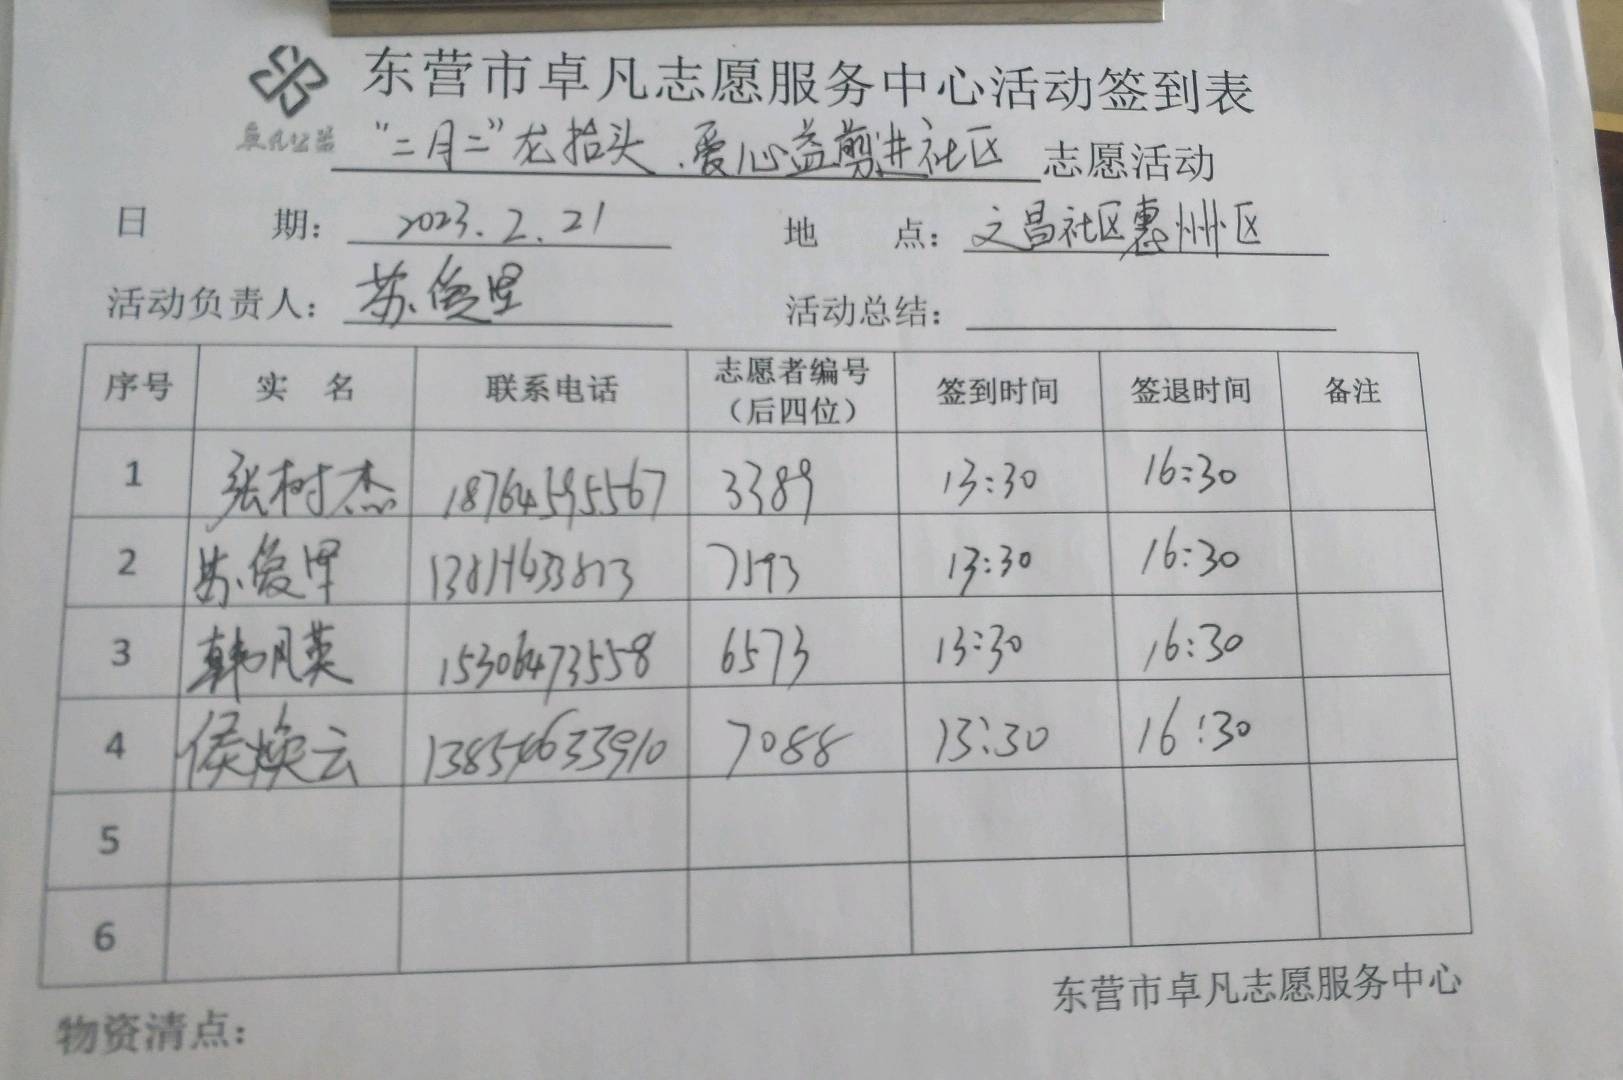 东营市卓凡志愿服务中心活动签到表
卓凡公益
“二月二”龙抬头.爱心益剪进社区 志愿活动
日 期: 2023.2.21 地 点: 文昌社区惠州区
活动负责人: 苏俊 活动总结:
序号 实 名 联系电话 志愿者编号（后四位） 签到时间 签退时间 备注
1 张树杰 18764595567 3389 13:30 16:30
2 苏俊 7593 13:30 16:30
3 韩月英 15306473558 6573 13:30 16:30
4 侯焕云 13854633910 7088 13:30 16:30
5
6
东营市卓凡志愿服务中心
物资清点: